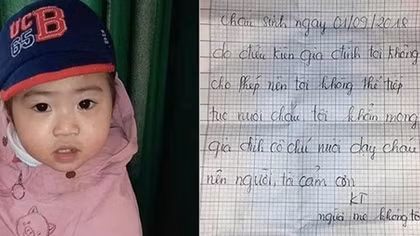 UCB
65
Cháu sinh ngày 01/09/2018
do điều kiện gia đình tôi không
cho phép nên tôi không thể tiếp
tục nuôi cháu tôi khẩn mong
gia đình cô chú nuôi dạy cháu
nên người, tôi cảm ơn
KT
người mẹ không tô